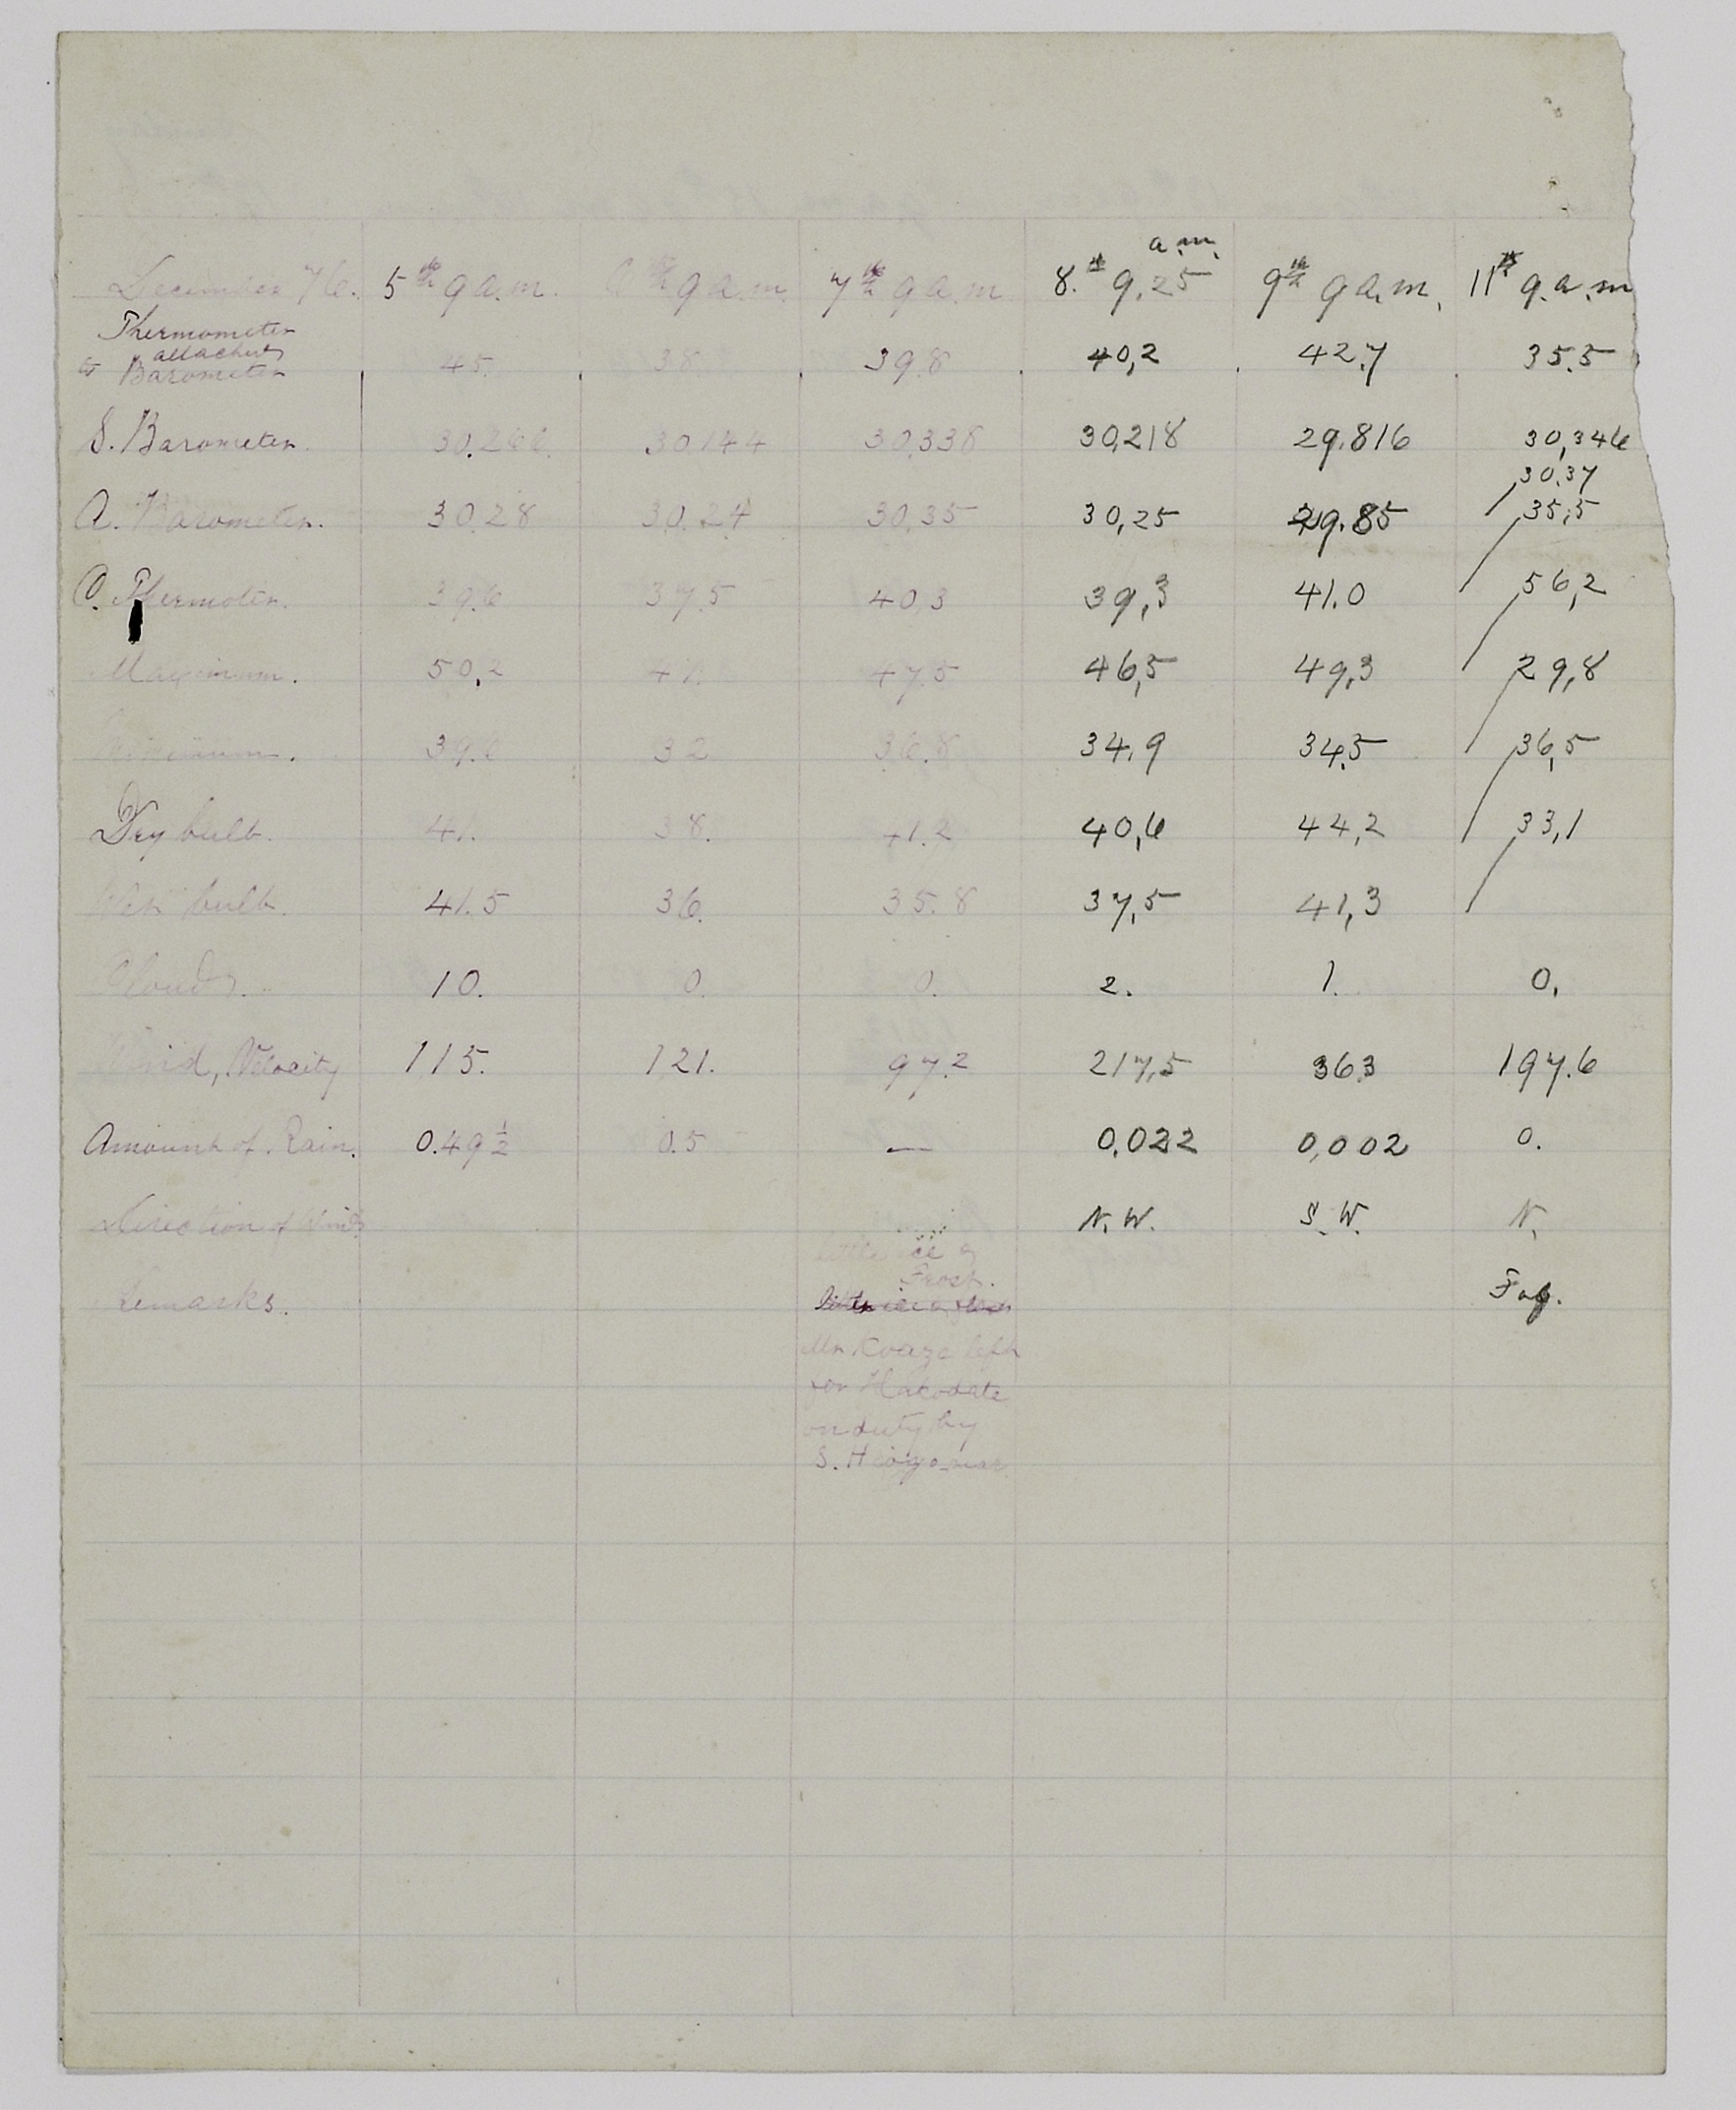 a.m.
December 76. 5th 9 a.m. 6th 9 a.m. 7th 9 a.m 8.th 9.25 9th 9 a.m. 11th 9.a.m
Thermometer
attached
to Barometer 45. 38. 39.8 40,2 42.7 35.5
S. Barometer. 30.266. 30.144 30.338 30,218 29.816 30,346
30.37
A. Barometer. 30.28 30.24 30.35 30,25 29.85 35,5
O. Thermoter. 39.6 37.5 40.3 39,3 41.0 56,2
Maximum. 50,2 47.5 46,5 49,3 29,8
Minimum. 39.6 32 36.8 34,9 34,5 36,5
Dry bulb. 41. 38. 41.2 40,6 44,2 33,1
Wet bulb. 41.5 36. 35.8 37,5 41,3
Clouds. 10. 0. 0. 2. 1. 0.
Wind, Velocity 115. 121. 97.2 217,5 363 197.6
Amount of Rain. 0.49½ 0.5 — 0,022 0,002 0.
Direction of Wind N.W. S.W. N.
little ice &
Frost.
Remarks. Fog.
Mr. left
for Hakodate
on duty by
S.